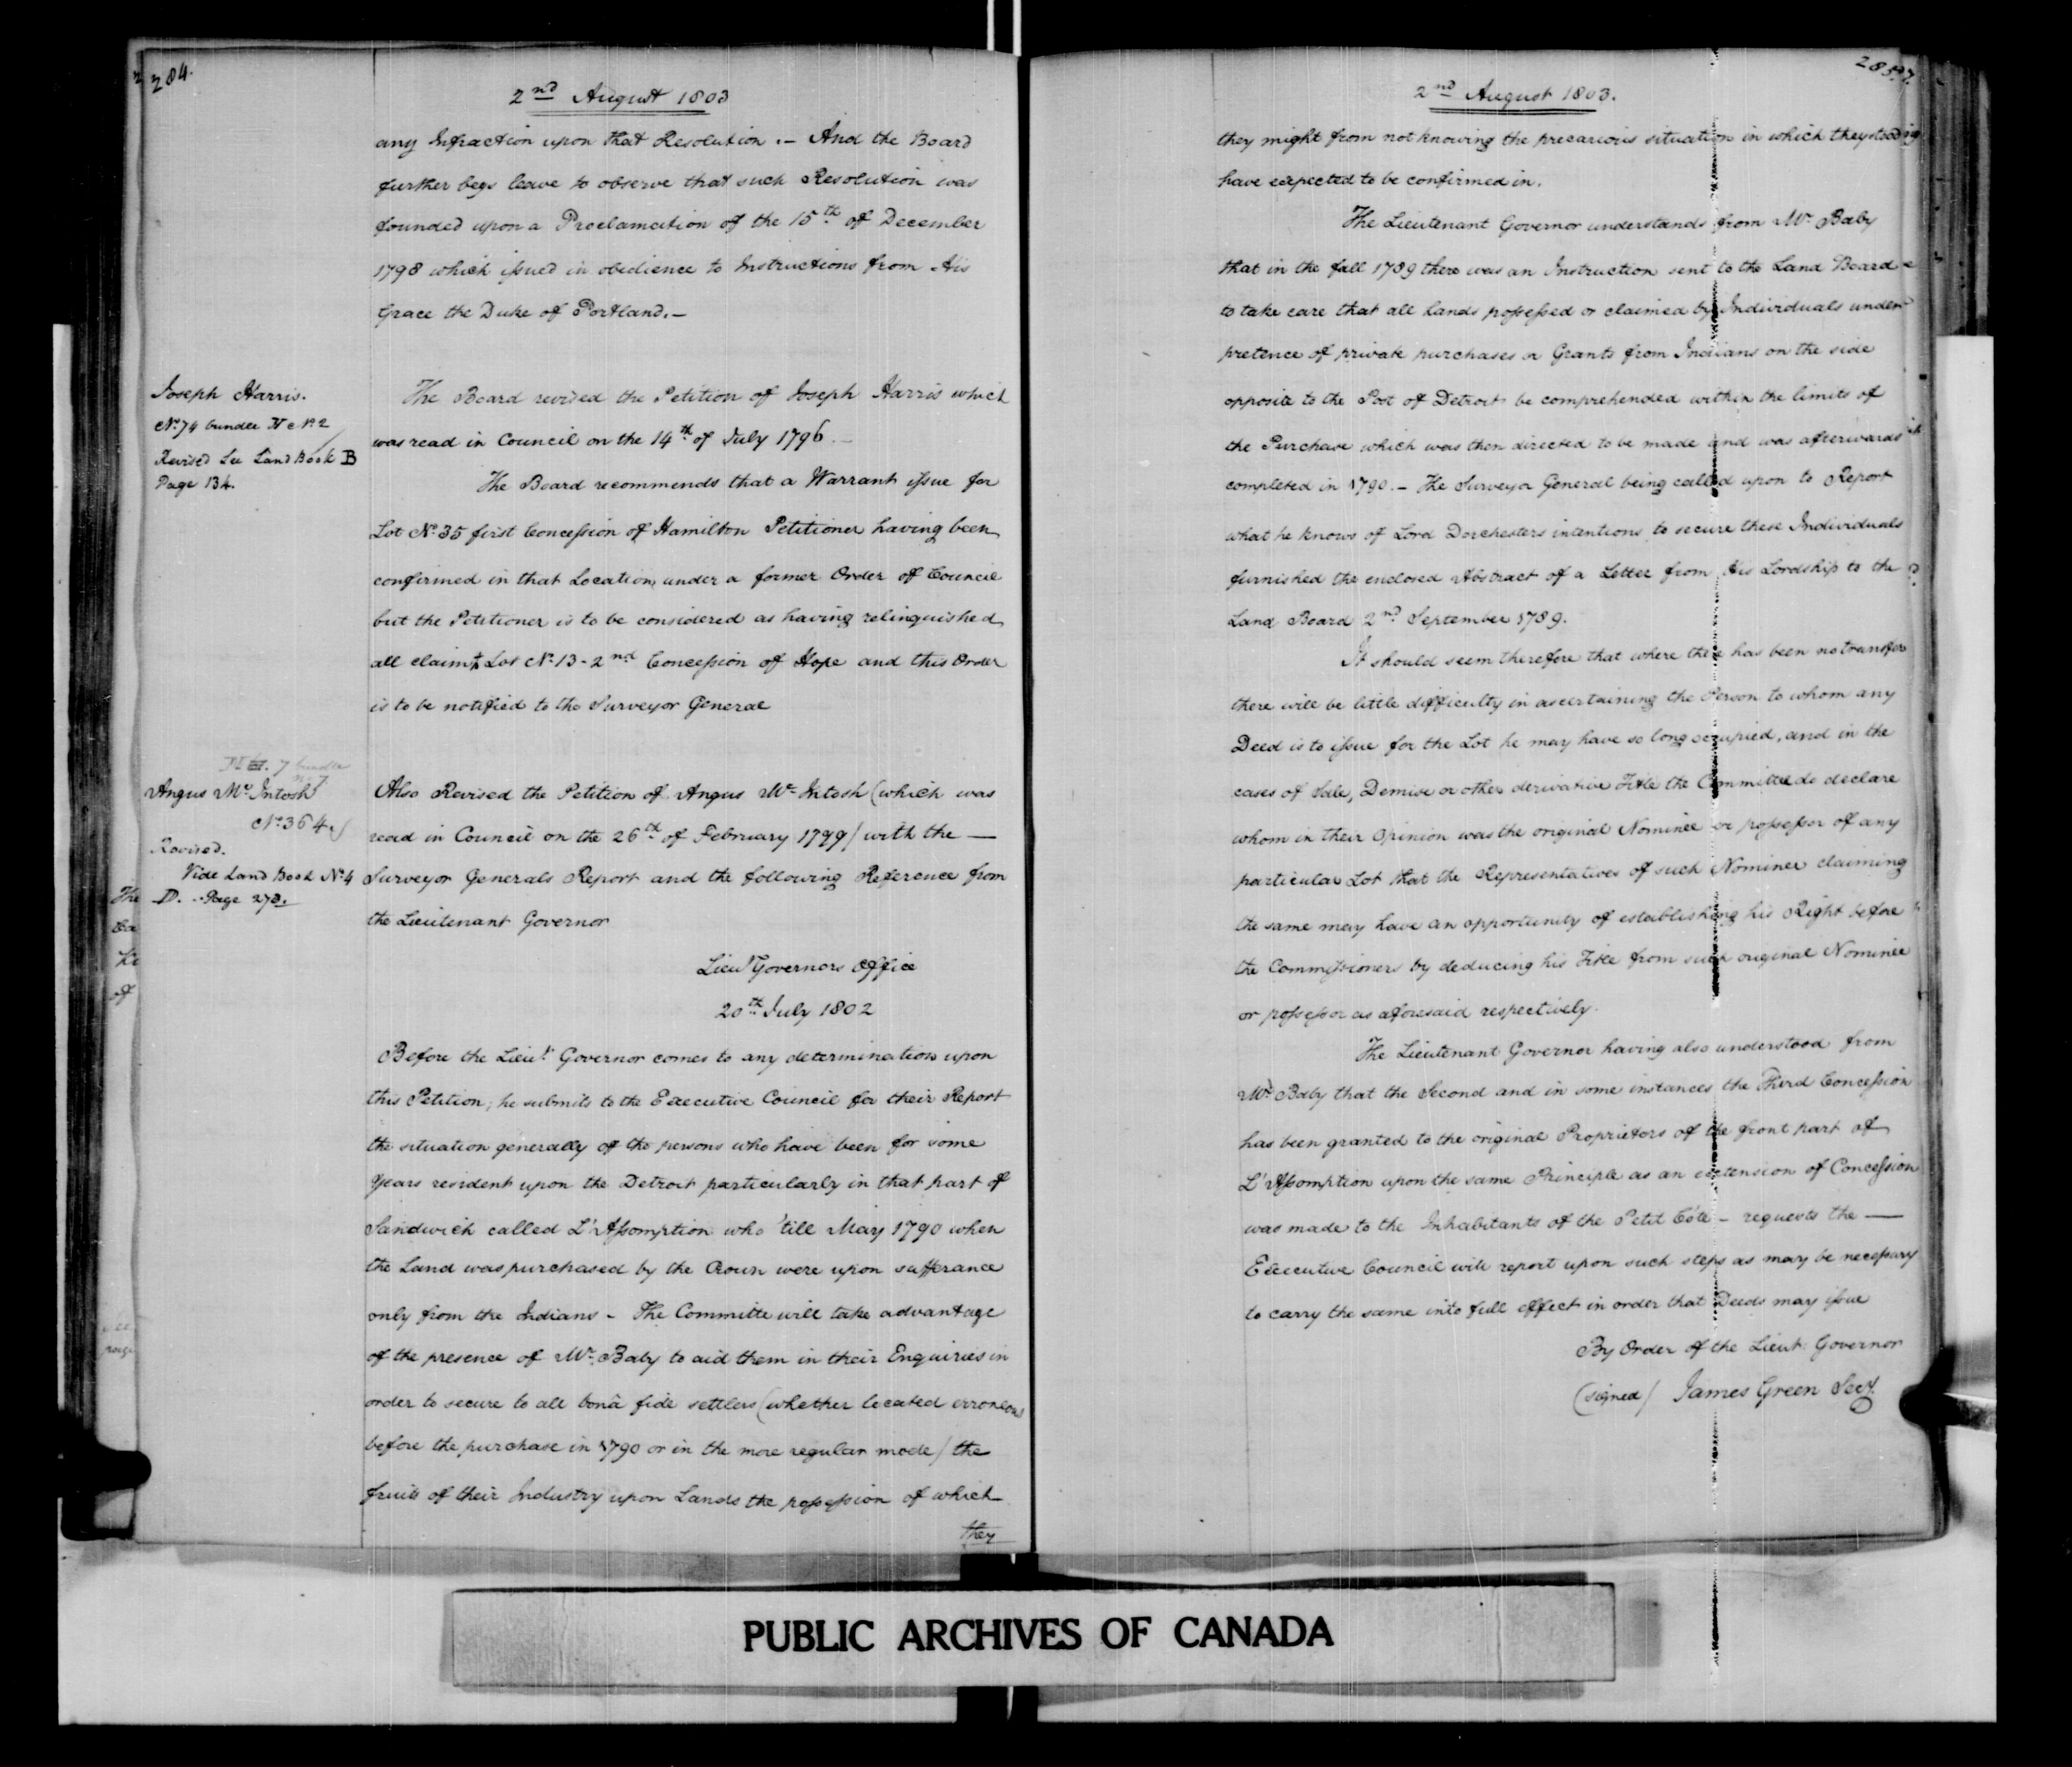 284.
2nd August 1803
any Infraction upon that Resolution .— And the Board
further begs leave to observe that such Resolution was
founded upon a Proclamation of the 15th of December
1798 which issued in obedience to Instructions from His
Grace the Duke of Portland.—
Joseph Harris.
No. 74 bundle H No. 2
Revised See Land Book B
Page 134.
The Board revised the Petition of Joseph Harris which
was read in Council on the 14th of July 1796.—
The Board recommends that a Warrant issue for
Lot No. 35 first Concession of Hamilton Petitioner having been
confirmed in that Location, under a former Order of Council
but the Petitioner is to be considered as having relinquished
all claim to Lot No. 13 - 2nd Concession of Hope and this Order
is to be notified to the Surveyor General
Angus Mc Intosh
No. 364
Revised.
Vide Land Book No. 4
D. Page 273.
Also Revised the Petition of Angus Mc Intosh (which was
read in Council on the 26th of February 1799) with the —
Surveyor Generals Report and the following Reference from
the Lieutenant Governor
Lieut Governors Office
20th July 1802
Before the Lieut. Governor comes to any determination upon
this Petition, he submits to the Executive Council for their Report
the situation generally of the persons who have been for some
Years resident upon the Detroit particularly in that part of
Sandwich called L'Assomption who 'till May 1790 when
the Land was purchased by the Crown were upon sufferance
only from the Indians - The Committe will take advantage
of the presence of Mr. Baby to aid them in their Enquiries in
order to secure to all bonâ fide settlers (whether located erroneous
before the purchase in 1790 or in the more regular mode) the
fruits of their Industry upon Lands the possession of which
they
The
of
285.
2nd August 1803.
they might from not knowing the precarious situation in which they stood
have expected to be confirmed in.
The Lieutenant Governor understands from Mr. Baby
that in the fall 1789 there was an Instruction sent to the Land Board
to take care that all Lands possessed or claimed by Individuals under
pretence of private purchases or Grants from Indians on the side
opposite to the Post of Detroit be comprehended within the limits of
the Purchase which was then directed to be made and was afterwards
completed in 1790.— The Surveyor General being called upon to Report
what he knows of Lord Dorchesters intentions to secure these Individuals
furnished the enclosed Abstract of a Letter from His Lordship to the
Land Board 2nd September 1789.
It should seem therefore that where there has been no transfer
there will be little difficulty in ascertaining the Person to whom any
Deed is to issue for the Lot he may have so long occupied, and in the
cases of Sale, Demise or other derivative Title the Committee do declare
whom in their Opinion was the original Nominee or possessor of any
particular Lot that the Representatives of such Nominee claiming
the same may have an opportunity of establishing his Right before
the Commissioners by deducing his Title from such original Nominee
or possessor as aforesaid respectively.
The Lieutenant Governor having also understood from
Mr. Baby that the Second and in some instances the Third Concession
has been granted to the original Proprietors of the front part of
L'Assomption upon the same Principle as an extension of Concession
was made to the Inhabitants of the Petit Côte - requests the —
Executive Council will report upon such steps as may be necessary
to carry the same into full effect in order that Deeds may issue
By Order of the Lieut. Governor
(signed) James Green Secy.
PUBLIC ARCHIVES OF CANADA